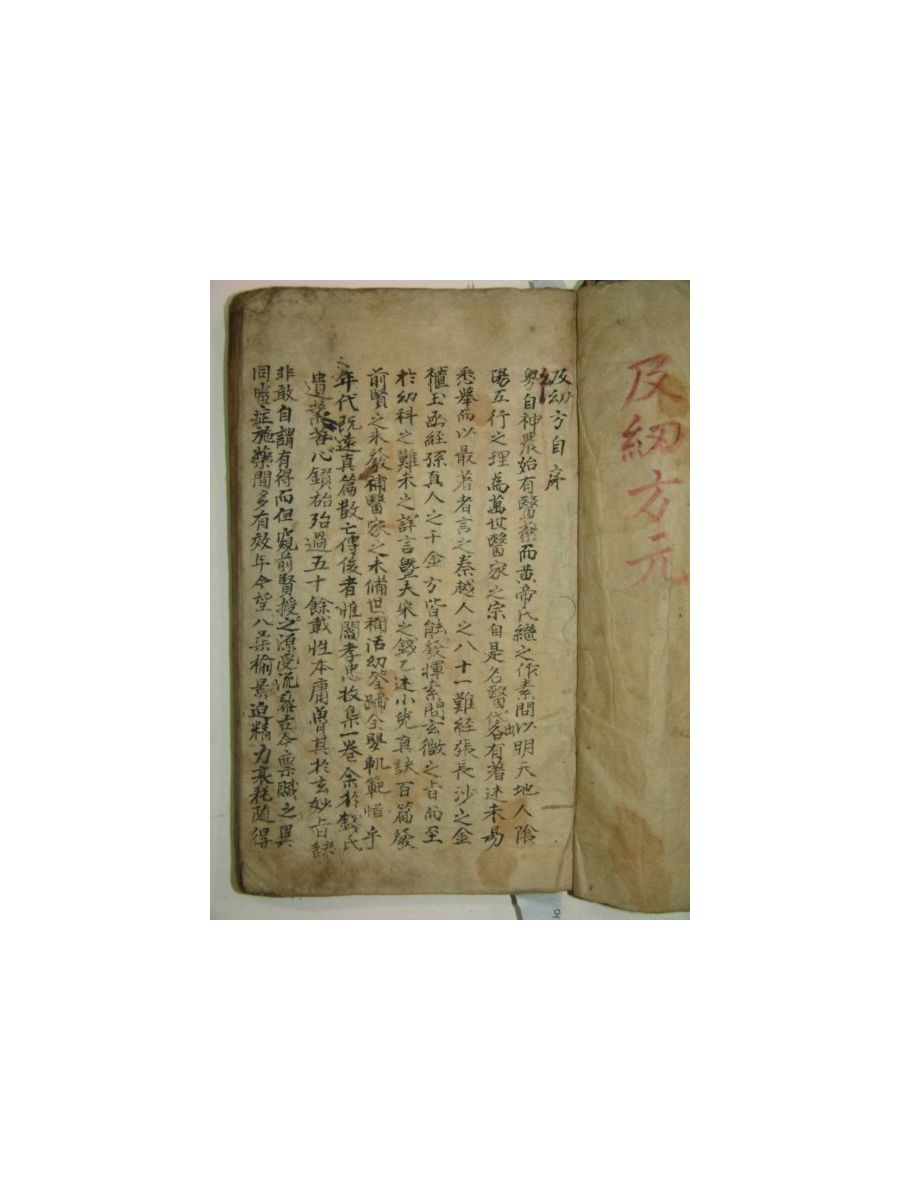 及幼方元
及幼方自序
粤自神農始有醫藥而黃帝氏繼之作素問以明天地人陰
陽五行之理爲萬世醫家之宗自是名醫代出各有著述未易
悉擧而以最著者言之秦越人之八十一難經張長沙之金
樻玉函經孫眞人之千金方皆能發揮素問玄微之旨而至
於幼科之難未之詳言曁大宋之錢乙述小兒直訣百篇發
前賢之未發補醫家之未備世稱活幼筌蹄全嬰軌範惜乎
年代旣遠眞篇散亡傳後者惟閻孝忠收集一卷余於錢氏
遺藁苦心鑽硏殆過五十餘載性本庸魯其於玄妙旨訣
非敢自謂有得而但窺前賢授受之源流察古今禀賦之異
同審症施藥間多有效年今望八桑楡景迫精力衰耗隨得